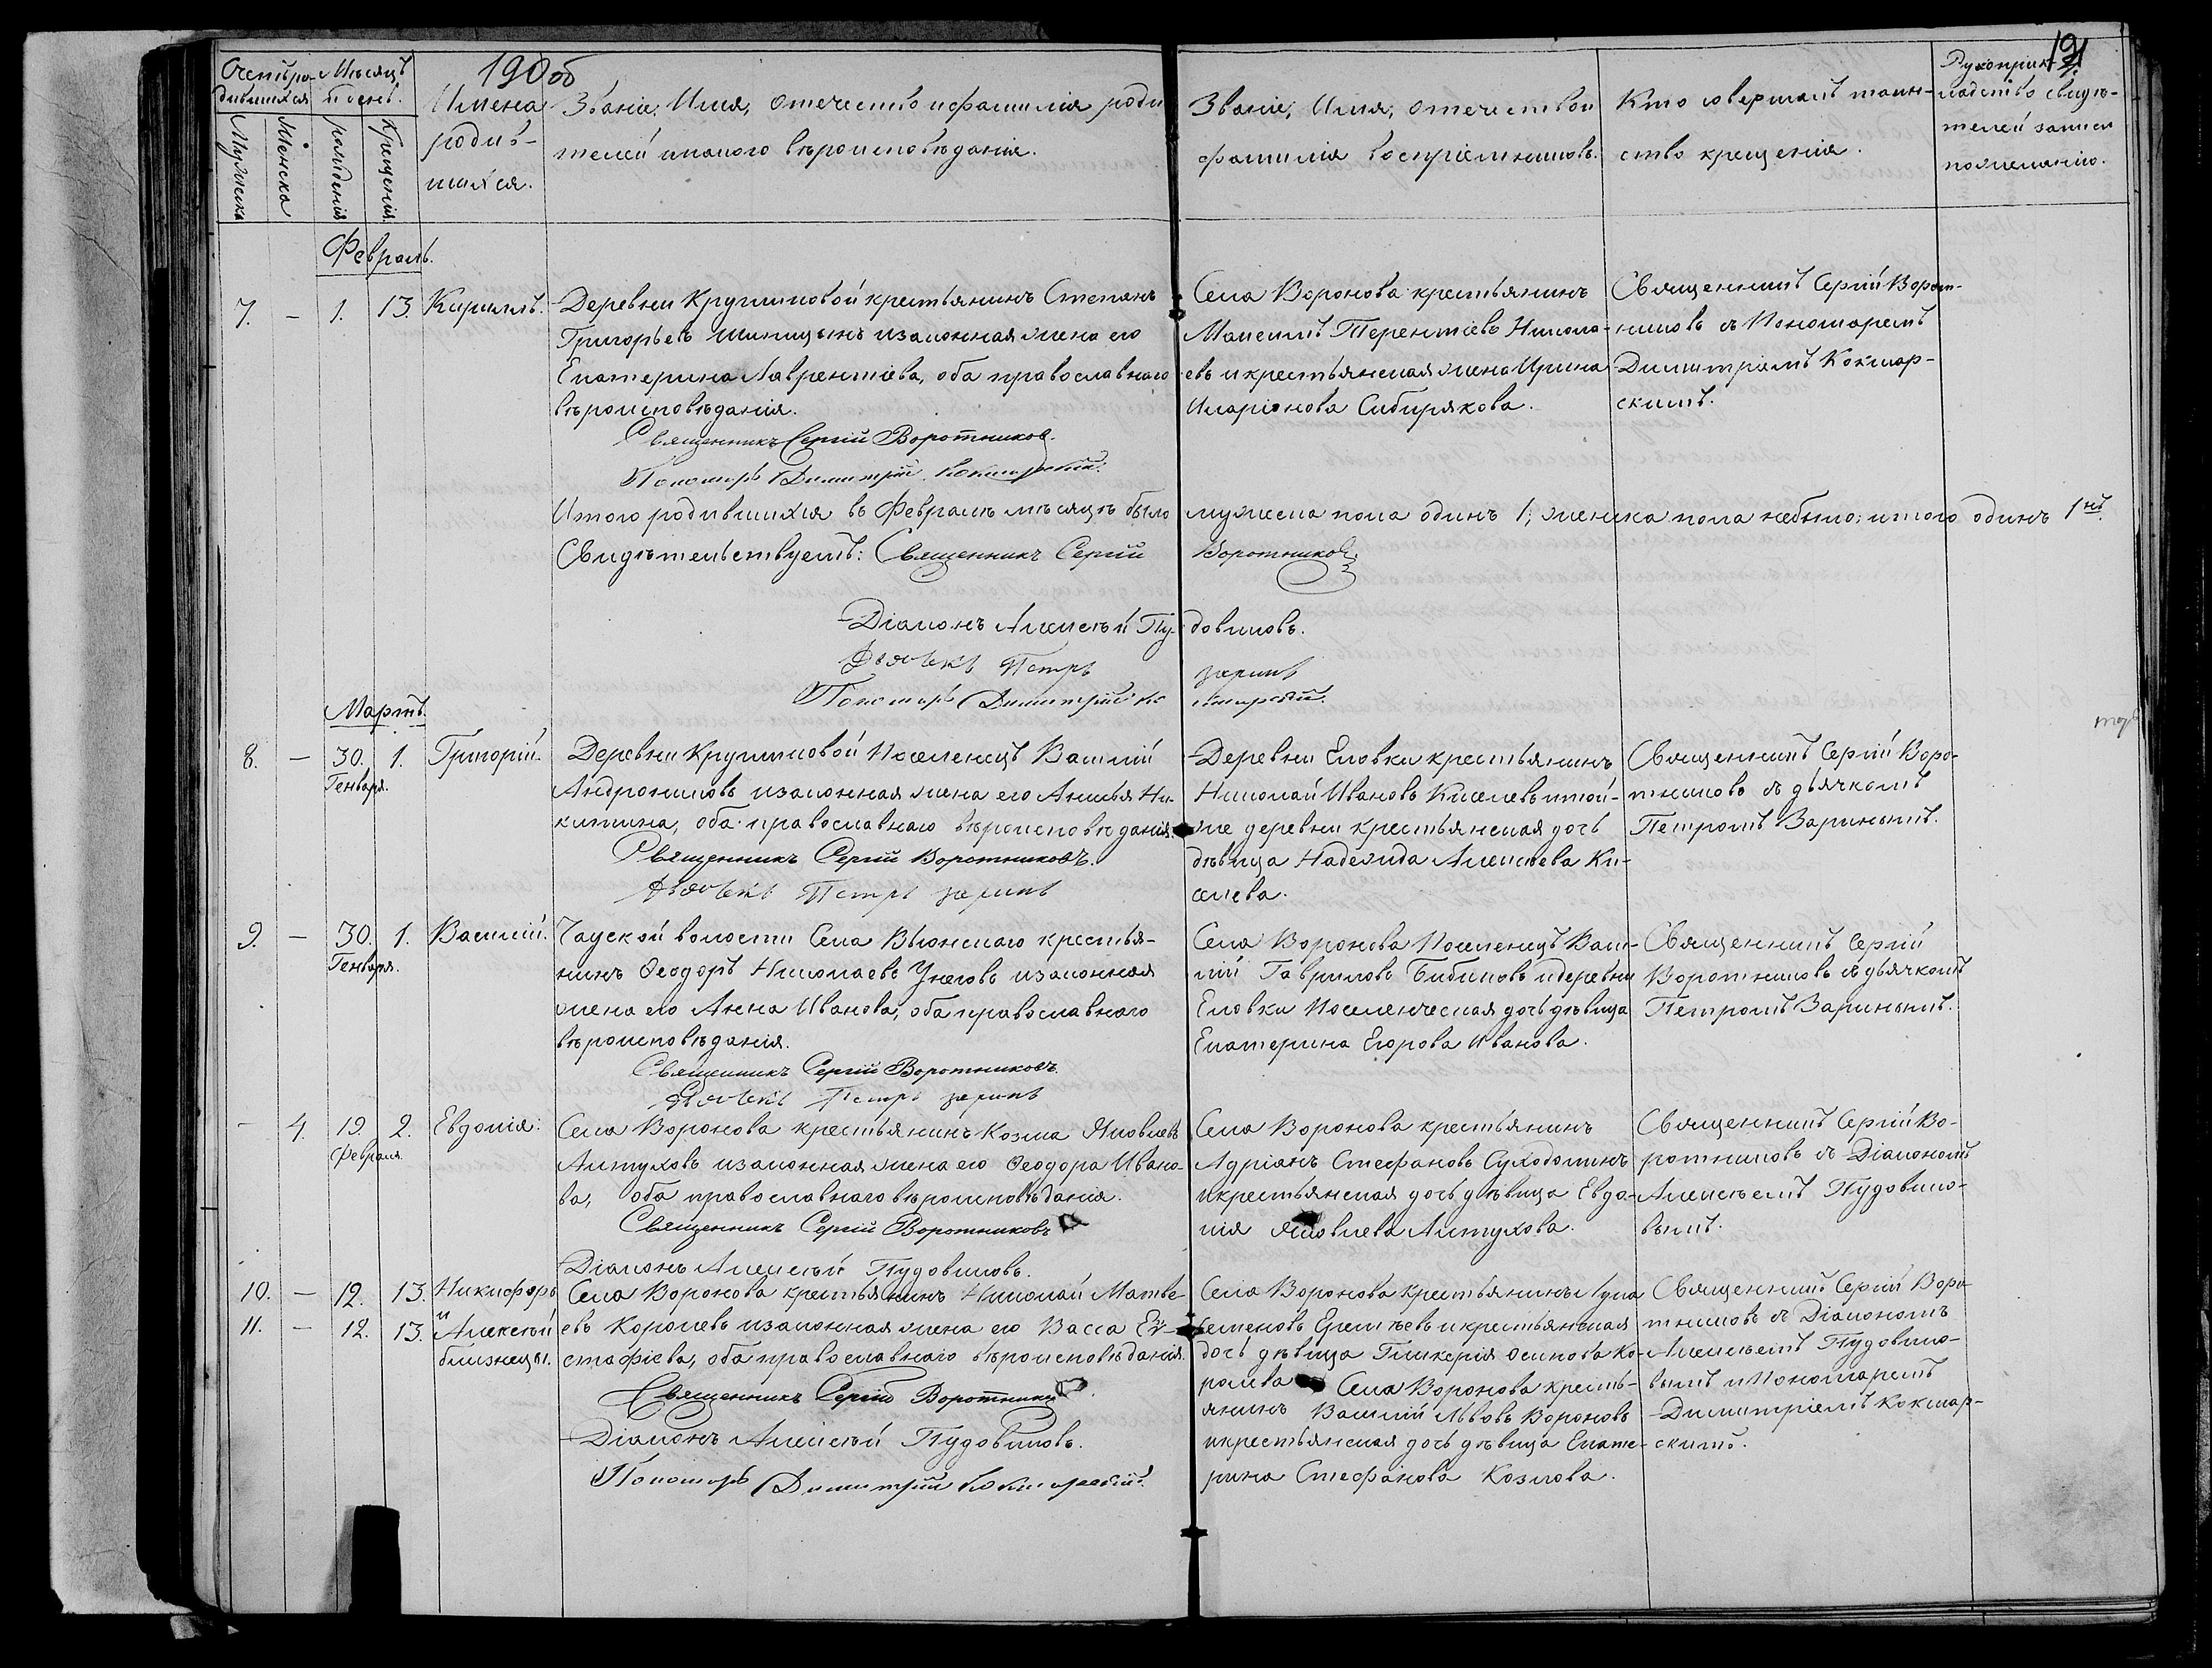 190 об
191
Счетъ ро-
дившихся
Мѣсяцъ
и день.
Мужска
Женска
рожденія
крещенія
Имена
родив-
шихся.
Званіе, Имя, отечество и фамилія роди
телей и какого вѣроисповѣданія.
Званіе, Имя, отечество и
фамилія воспріемниковъ.
Кто совершалъ таин-
ство крещенія.
Рукоприк-
ладство свидѣ-
телей записи
по желанію.
Февраль.
7. – 1. 13. Кириллъ.
Деревни Кругликовой крестьянинъ Степанъ
Григорьевъ Шипицынъ и законная жена его
Екатерина Лаврентіева, оба православнаго
вѣроисповѣданія.
Священникъ Сергій Воротников.
Пономарь Димитрій Кокшарскій.
Села Воронова крестьянинъ
Максимъ Терентіевъ Никола-
евъ и крестьянская жена Ирина
Иларіонова Сибирякова.
Священникъ Сергій Ворот-
никовъ съ Пономаремъ
Димитріемъ Кокшар-
скимъ.
Итого родившихся въ Февралѣ мѣсяцѣ было мужеска пола одинъ 1, женска пола небыло; итого одинъ 1нъ.
Свидѣтельствуемъ: Священникъ Сергій Воротников.
Діаконъ Алексѣй Пу- довиковъ.
Дьячекъ Петръ заринъ
Пономарь Димитрій Ко кшарскій.
Мартъ.
8. – 30. 1. Григорій.
Генваря.
Деревни Кругликовой Поселенецъ Василій
Андрониковъ и законная жена его Анисья Ни-
китина, оба православнаго вѣроисповѣданія.
Священникъ Сергій Воротниковъ.
Дьячекъ Петръ заринъ
Деревни Еловки крестьянинъ
Николай Ивановъ Киселевъ и той-
же деревни крестьянская дочь
дѣвица Надежда Алексіева Ки-
селева.
Священникъ Сергій Воро-
тниковъ съ дьячкомъ
Петромъ Заринымъ.
9. – 30. 1. Василій.
Генваря.
Чауской волости Села Вьюнскаго крестья-
нинъ Ѳеодоръ Николаевъ Унеговъ и законная
жена его Анна Иванова, оба православнаго
вѣроисповѣданія.
Священникъ Сергій Воротниковъ
Дьячекъ Петръ заринъ
Села Воронова Поселенецъ Васи-
лій Гавриловъ Бибиковъ и деревни
Еловки Поселенческая дочь дѣвица
Екатерина Егорова Иванова.
Священникъ Сергій
Воротниковъ съ дьячкомъ
Петромъ Заринымъ.
– 4. 19. 2. Евдокія.
Февраля
Села Воронова крестьянинъ Козма Яковлевъ
Алтуховъ и законная жена его Ѳеодора Ивано-
ва, оба православнаго вѣроисповѣданія.
Священникъ Сергій Воротниковъ
Діаконъ Алексѣй Пудовиковъ.
Села Воронова крестьянинъ
Адріанъ Стефановъ Суходолинъ
и крестьянская дочь дѣвица Евдо-
кія Яковлева Алтухова.
Священникъ Сергій Во-
ротниковъ съ Діакономъ
Алексѣемъ Пудовико-
вымъ.
10. – 12. 13. Никифоръ
и
11. – 12. 13. Алексѣй
близнецы.
Села Воронова крестьянинъ Николай Матве-
евъ Королевъ и законная жена его Васса Ев-
стафіева, оба православнаго вѣроисповѣданія.
Священникъ Сергій Воротников
Діаконъ Алексѣй Пудовиковъ.
Пономарь Димитрій Кокшарскій.
Села Воронова крестьянинъ Лука
Семеновъ Еремѣевъ и крестьянская
дочь дѣвица Гликерія Осипова Ко-
ролева Села Воронова кресть-
янинъ Василій Львовъ Вороновъ
и крестьянская дочь дѣвица Екате-
рина Стефанова Козлова.
Священникъ Сергій Воро-
тниковъ съ Діакономъ
Алексѣемъ Пудовико-
вымъ и Пономаремъ
Димитріемъ Кокшар-
скимъ.